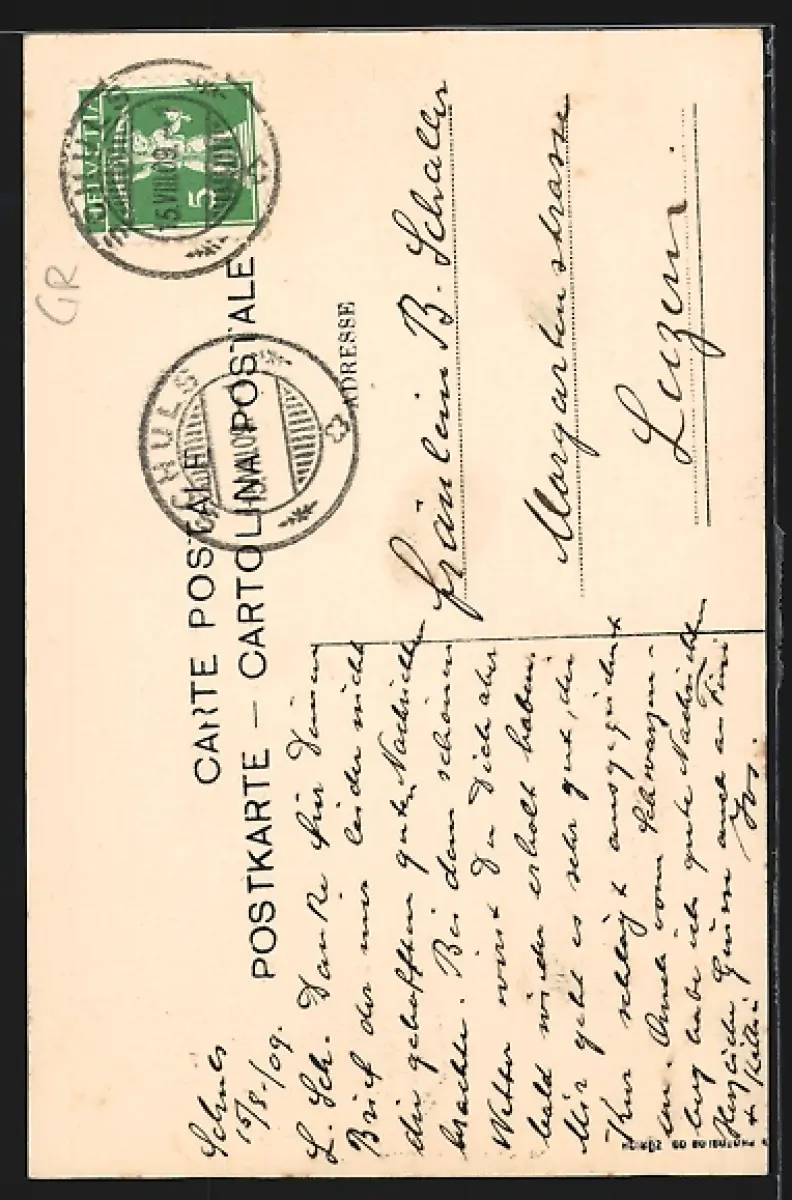 HELVETIA
5
SCHULS
15.VIII.09
SCHULS
15.VIII.09
GR
CARTE POSTALE
POSTKARTE — CARTOLINA POSTALE
ADRESSE
Fräulein B. Schaller
Morgartenstrasse
Luzern.
Schuls
15/8./09.
L. Sch. Danke für Deinen
Brief der mir leider nicht
die gehofften guten Nachrichten
brachte. Bei dem schönen
Wetter wirst Du Dich aber
bald wieder erholt haben.
Mir geht es sehr gut, die
Kur schlägt ausgezeichnet
an. Auch vom Schwarzen-
berg habe ich gute Nachrichten
Herzliche Grüsse auch an
+